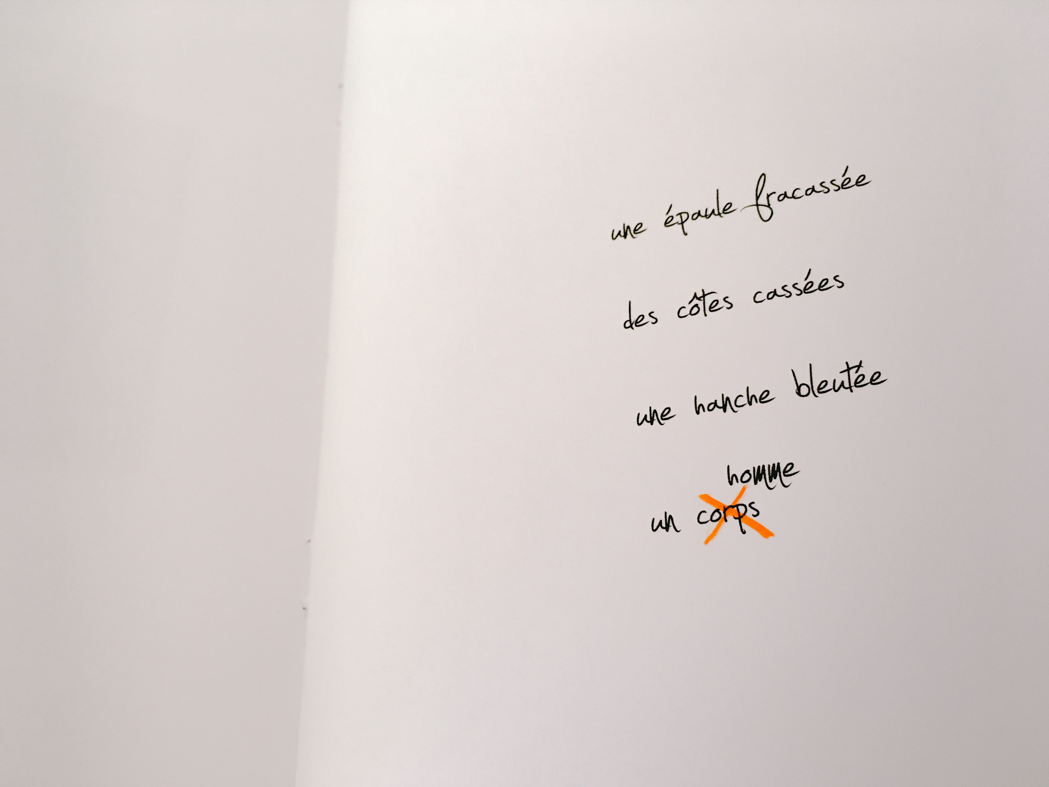 une épaule fracassée
des côtes cassées
une hanche bleutée
homme
un corps